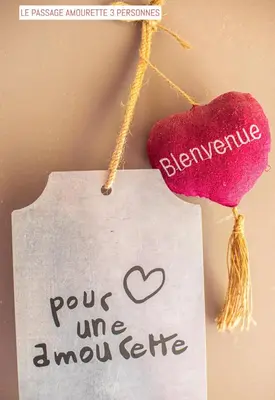 LE PASSAGE AMOURETTE 3 PERSONNES
BIenvenue
pour
une
amourette